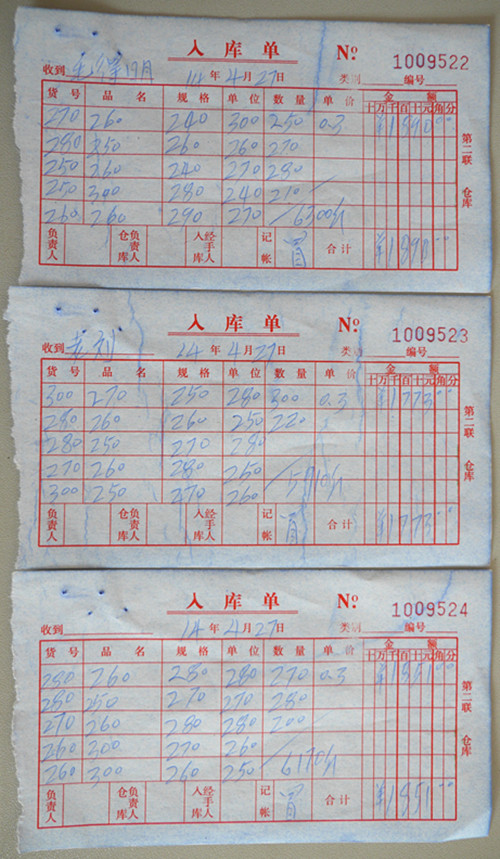 入库单 Nº 1009522
收到 14年4月27日 类别 编号
货号 品名 规格 单位 数量 单价 金额
十万千百十元角分
270 260 240 300 250 0.3 ¥189000
280 250 260 260 270
250 260 240 270 280
250 300 280 240 210
260 260 290 270 6300个
负责人 仓库负责人 经手人入库 记帐 合计 ¥189000
第二联 仓库
入库单 Nº 1009523
收到 老刘 14年4月27日 类别 编号
货号 品名 规格 单位 数量 单价 金额
十万千百十元角分
300 270 250 280 300 0.3 ¥177300
280 260 260 250 220
280 250 270 280
270 260 280 5910个
300 250 270 260
负责人 仓库负责人 经手人入库 记帐 合计 ¥177300
第二联 仓库
入库单 Nº 1009524
收到 14年4月27日 类别 编号
货号 品名 规格 单位 数量 单价 金额
十万千百十元角分
280 260 280 280 270 0.3 ¥185100
280 250 270 270 280
270 260 280 280 200
260 300 270 260
260 300 260 250 6170个
负责人 仓库负责人 经手人入库 记帐 合计 ¥185100
第二联 仓库